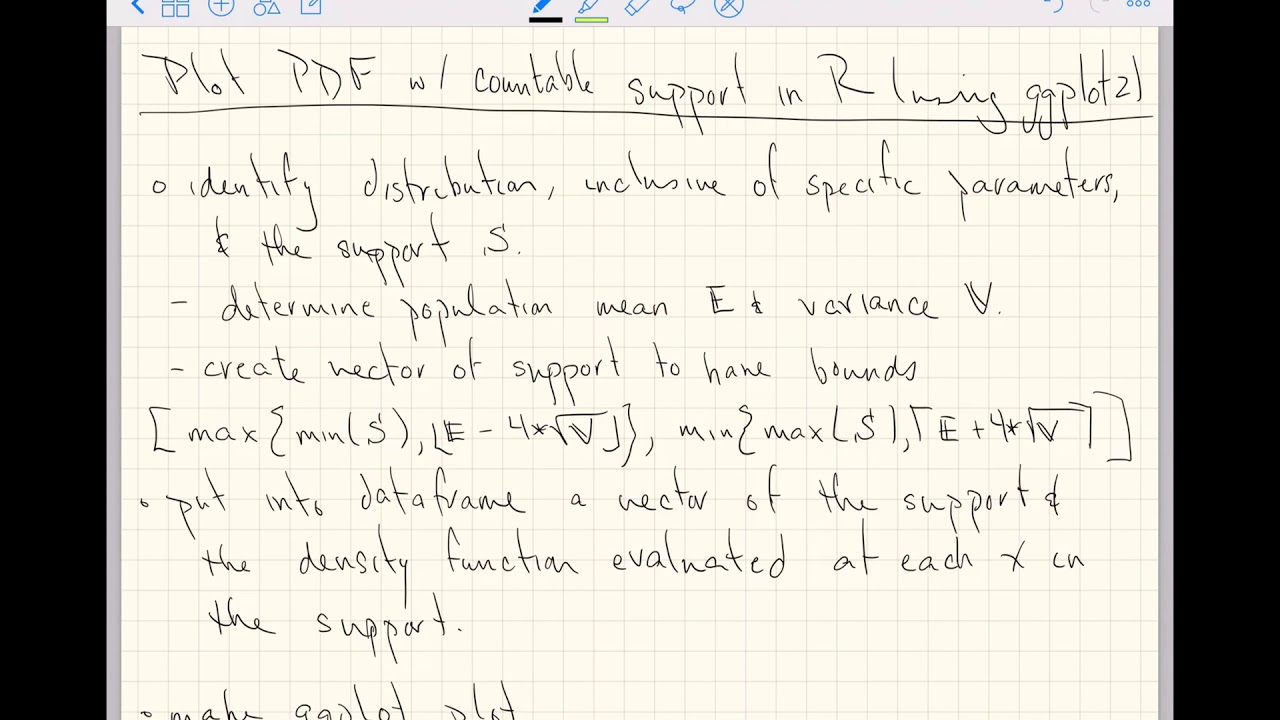 Plot PDF w/ countable support in R (using ggplot2)
o identify distribution, inclusive of specific parameters,
& the support S.
- determine population mean 𝔼 & variance 𝕍.
- create vector of support to have bounds
[max{min(S), ⌊𝔼 - 4*√𝕍⌋}, min{max(S), ⌈𝔼 + 4*√𝕍⌉]
• put into dataframe a vector of the support &
the density function evaluated at each x in
the support.
• make ggplot plot